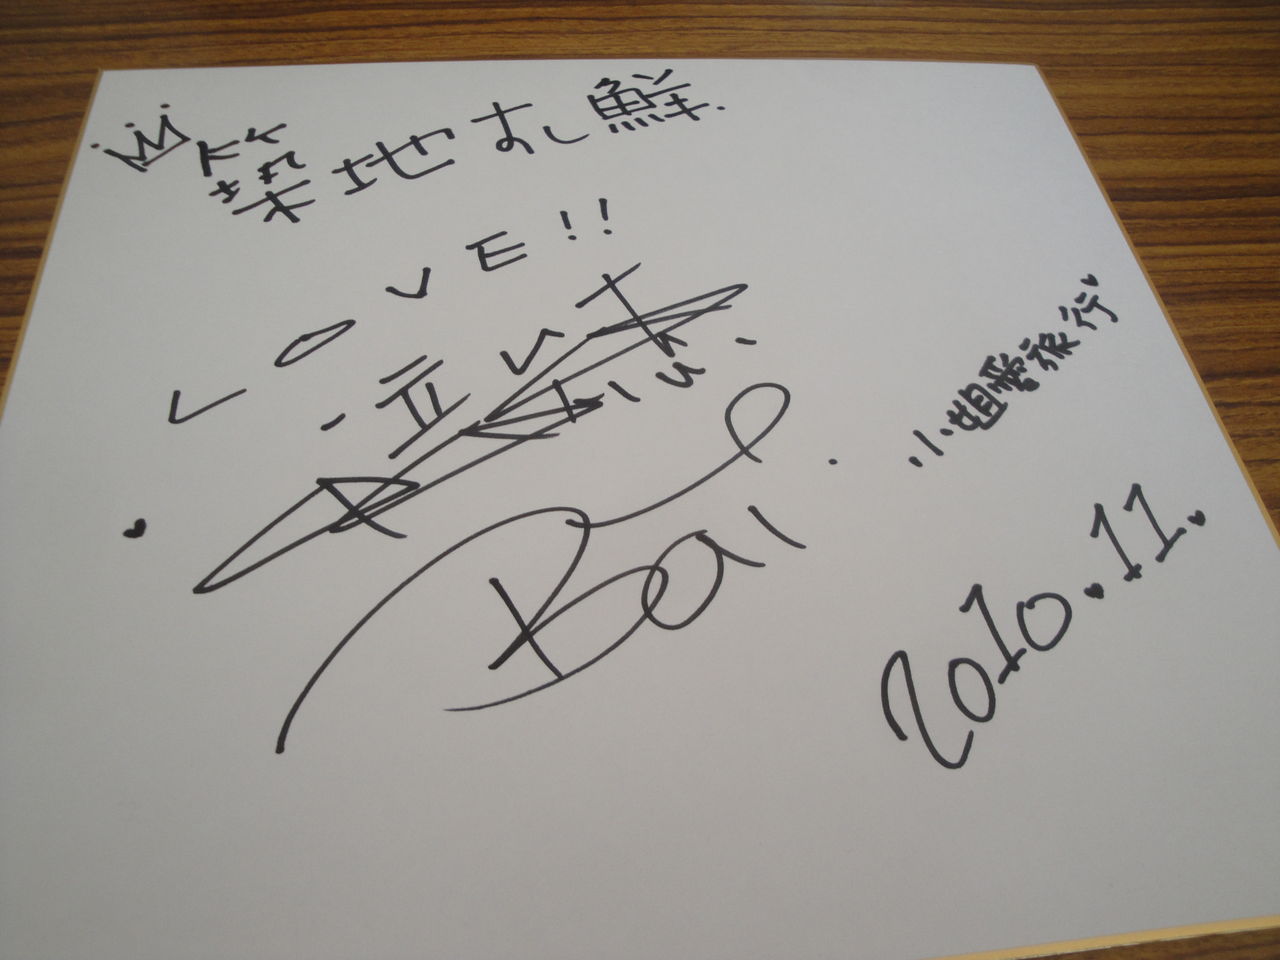 築地すし鮮.
LOVE!!
Bai
小姐愛旅行
2010.11.